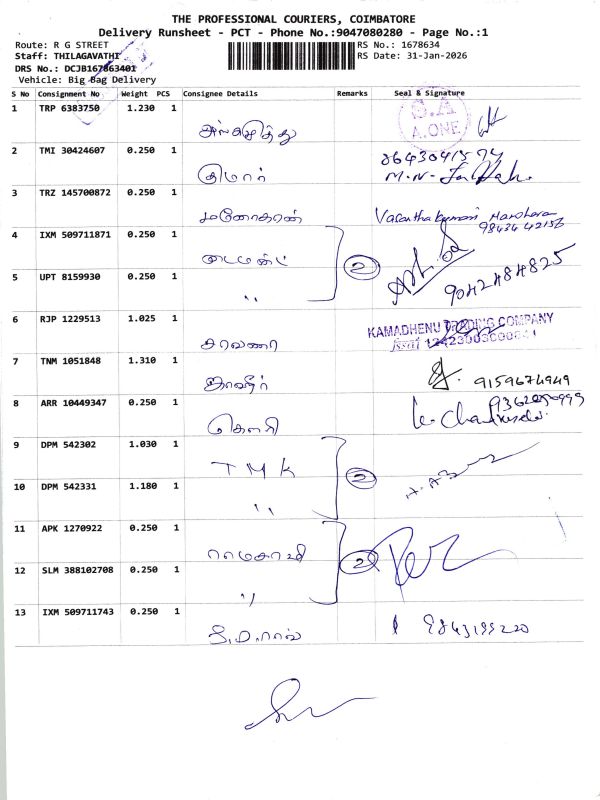 THE PROFESSIONAL COURIERS, COIMBATORE
Delivery Runsheet - PCT - Phone No.:9047080280 - Page No.:1
Route: R G STREET RS No.: 1678634
Staff: THILAGAVATHI RS Date: 31-Jan-2026
DRS No.: DCJB167863401
Vehicle: Big Bag Delivery
S No Consignment No Weight PCS Consignee Details Remarks Seal & Signature
1 TRP 6383750 1.230 1
S.A
A.ONE
2 TMI 30424607 0.250 1
குமார்
3 TRZ 145700872 0.250 1
மனோகரன் Vasanthakumari Manohara
98434 42156
4 IXM 509711871 0.250 1
டைமண்ட் 2
5 UPT 8159930 0.250 1
,, 9042484825
6 RJP 1229513 1.025 1
சரவணா KAMADHENU TRADING COMPANY
7 TNM 1051848 1.310 1
9159674949
8 ARR 10449347 0.250 1
கௌரி
9 DPM 542302 1.030 1
TMK 2
10 DPM 542331 1.180 1
,,
11 APK 1270922 0.250 1
2
12 SLM 388102708 0.250 1
,,
13 IXM 509711743 0.250 1
9843199220